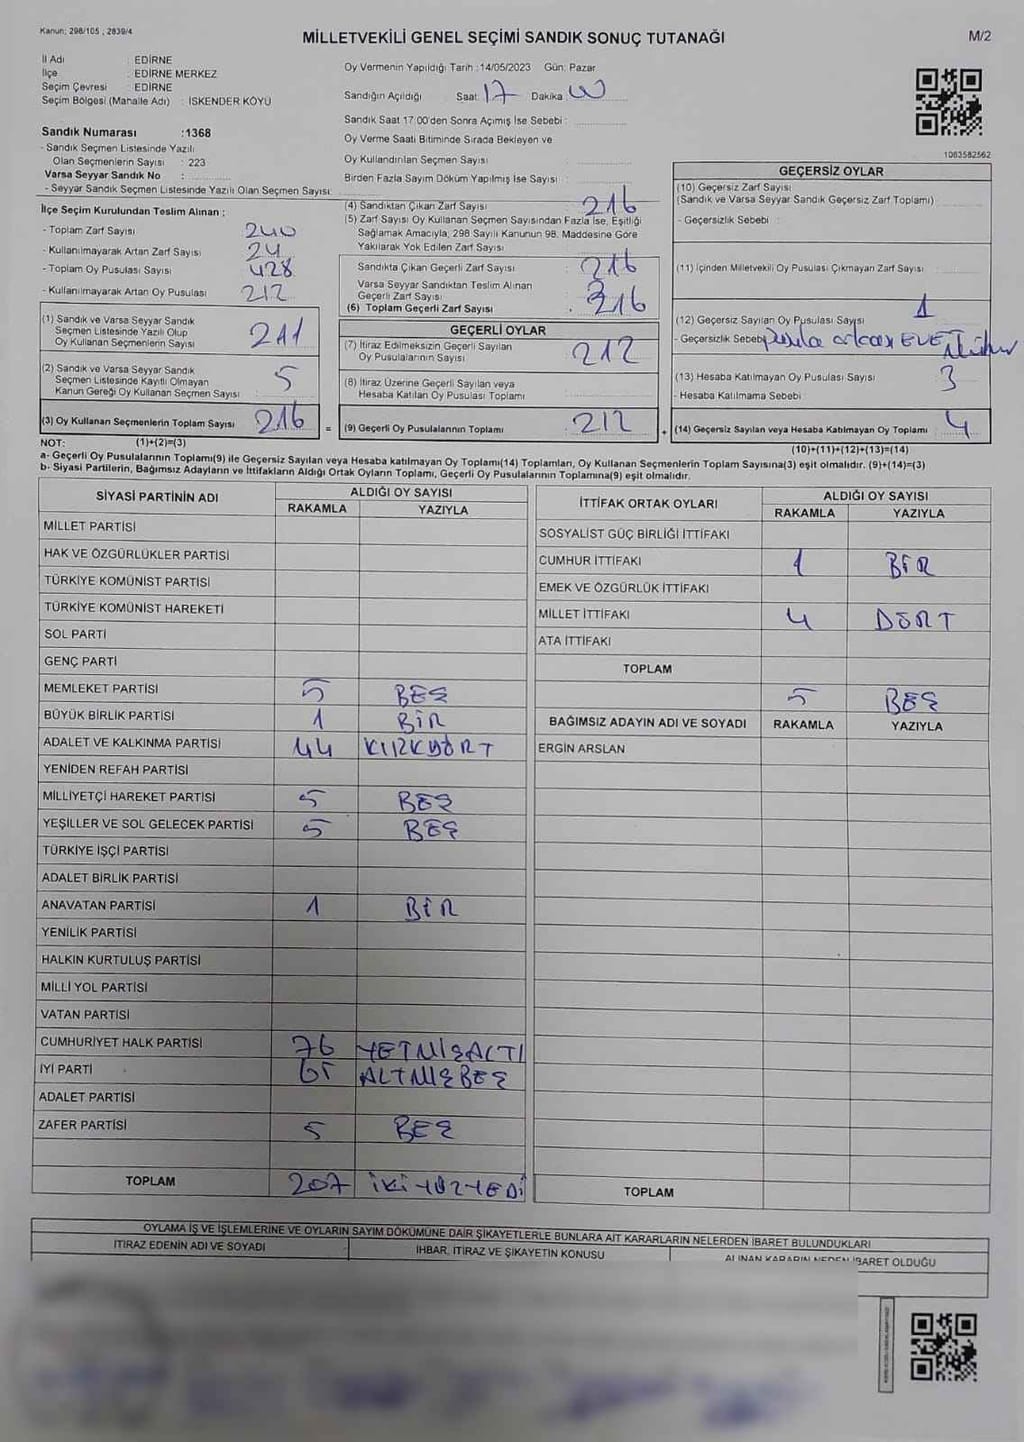 Kanun; 298/105 , 2839/4
MİLLETVEKİLİ GENEL SEÇİMİ SANDIK SONUÇ TUTANAĞI
M/2
İl Adı : EDİRNE
İlçe : EDİRNE MERKEZ
Seçim Çevresi : EDİRNE
Seçim Bölgesi (Mahalle Adı) : İSKENDER KÖYÜ
Sandık Numarası :1368
- Sandık Seçmen Listesinde Yazılı
Olan Seçmenlerin Sayısı : 223
Varsa Seyyar Sandık No :
- Seyyar Sandık Seçmen Listesinde Yazılı Olan Seçmen Sayısı:
Oy Vermenin Yapıldığı Tarih :14/05/2023 Gün: Pazar
Sandığın Açıldığı Saat: 17 Dakika:
Sandık Saat 17:00'den Sonra Açımış İse Sebebi :
Oy Verme Saati Bitiminde Sırada Bekleyen ve
Oy Kullandırılan Seçmen Sayısı :
Birden Fazla Sayım Döküm Yapılmış İse Sayısı :
1063582562
İlçe Seçim Kurulundan Teslim Alınan ;
- Toplam Zarf Sayısı : 240
- Kullanılmayarak Artan Zarf Sayısı : 24
- Toplam Oy Pusulası Sayısı : 428
- Kullanılmayarak Artan Oy Pusulası : 212
(1) Sandık ve Varsa Seyyar Sandık
Seçmen Listesinde Yazılı Olup
Oy Kullanan Seçmenlerin Sayısı : 211
(2) Sandık ve Varsa Seyyar Sandık
Seçmen Listesinde Kayıtlı Olmayan
Kanun Gereği Oy Kullanan Seçmen Sayısı : 5
(3) Oy Kullanan Seçmenlerin Toplam Sayısı : 216
(4) Sandıktan Çıkan Zarf Sayısı : 216
(5) Zarf Sayısı Oy Kullanan Seçmen Sayısından Fazla İse, Eşitliği
Sağlamak Amacıyla, 298 Sayılı Kanunun 98. Maddesine Göre
Yakılarak Yok Edilen Zarf Sayısı :
Sandıkta Çıkan Geçerli Zarf Sayısı : 216
Varsa Seyyar Sandıktan Teslim Alınan
Geçerli Zarf Sayısı :
(6) Toplam Geçerli Zarf Sayısı : 216
GEÇERLİ OYLAR
(7) İtiraz Edilmeksizin Geçerli Sayılan
Oy Pusulalarının Sayısı : 212
(8) İtiraz Üzerine Geçerli Sayılan veya
Hesaba Katılan Oy Pusulası Toplamı :
(9) Geçerli Oy Pusulalarının Toplamı : 212
GEÇERSİZ OYLAR
(10) Geçersiz Zarf Sayısı
(Sandık ve Varsa Seyyar Sandık Geçersiz Zarf Toplamı) :
- Geçersizlik Sebebi :
(11) İçinden Milletvekili Oy Pusulası Çıkmayan Zarf Sayısı :
(12) Geçersiz Sayılan Oy Pusulası Sayısı : 1
- Geçersizlik Sebebi : pusula arkası EVET
(13) Hesaba Katılmayan Oy Pusulası Sayısı : 3
- Hesaba Katılmama Sebebi :
(14) Geçersiz Sayılan veya Hesaba Katılmayan Oy Toplamı : 4
NOT: (1)+(2)=(3)
(10)+(11)+(12)+(13)=(14)
a- Geçerli Oy Pusulalarının Toplamı(9) ile Geçersiz Sayılan veya Hesaba katılmayan Oy Toplamı(14) Toplamları, Oy Kullanan Seçmenlerin Toplam Sayısına(3) eşit olmalıdır. (9)+(14)=(3)
b- Siyasi Partilerin, Bağımsız Adayların ve İttifakların Aldığı Ortak Oyların Toplamı, Geçerli Oy Pusulalarının Toplamına(9) eşit olmalıdır.
SİYASİ PARTİNİN ADI ALDIĞI OY SAYISI
RAKAMLA YAZIYLA
MİLLET PARTİSİ
HAK VE ÖZGÜRLÜKLER PARTİSİ
TÜRKİYE KOMÜNİST PARTİSİ
TÜRKİYE KOMÜNİST HAREKETİ
SOL PARTİ
GENÇ PARTİ
MEMLEKET PARTİSİ 5 BEŞ
BÜYÜK BİRLİK PARTİSİ 1 BİR
ADALET VE KALKINMA PARTİSİ 44 KIRKDÖRT
YENİDEN REFAH PARTİSİ
MİLLİYETÇİ HAREKET PARTİSİ 5 BEŞ
YEŞİLLER VE SOL GELECEK PARTİSİ 5 BEŞ
TÜRKİYE İŞÇİ PARTİSİ
ADALET BİRLİK PARTİSİ
ANAVATAN PARTİSİ 1 BİR
YENİLİK PARTİSİ
HALKIN KURTULUŞ PARTİSİ
MİLLİ YOL PARTİSİ
VATAN PARTİSİ
CUMHURİYET HALK PARTİSİ 76 YETMİŞALTI
İYİ PARTİ 65 ALTMIŞBEŞ
ADALET PARTİSİ
ZAFER PARTİSİ 5 BEŞ
TOPLAM 207 İKİYÜZYEDİ
İTTİFAK ORTAK OYLARI ALDIĞI OY SAYISI
RAKAMLA YAZIYLA
SOSYALİST GÜÇ BİRLİĞİ İTTİFAKI
CUMHUR İTTİFAKI 1 BİR
EMEK VE ÖZGÜRLÜK İTTİFAKI
MİLLET İTTİFAKI 4 DÖRT
ATA İTTİFAKI
TOPLAM
5 BEŞ
BAĞIMSIZ ADAYIN ADI VE SOYADI RAKAMLA YAZIYLA
ERGİN ARSLAN
TOPLAM
OYLAMA İŞ VE İŞLEMLERİNE VE OYLARIN SAYIM DÖKÜMÜNE DAİR ŞİKAYETLERLE BUNLARA AİT KARARLARIN NELERDEN İBARET BULUNDUKLARI
İTİRAZ EDENİN ADI VE SOYADI İHBAR, İTİRAZ VE ŞİKAYETİN KONUSU ALINAN KARARIN NEDEN İBARET OLDUĞU